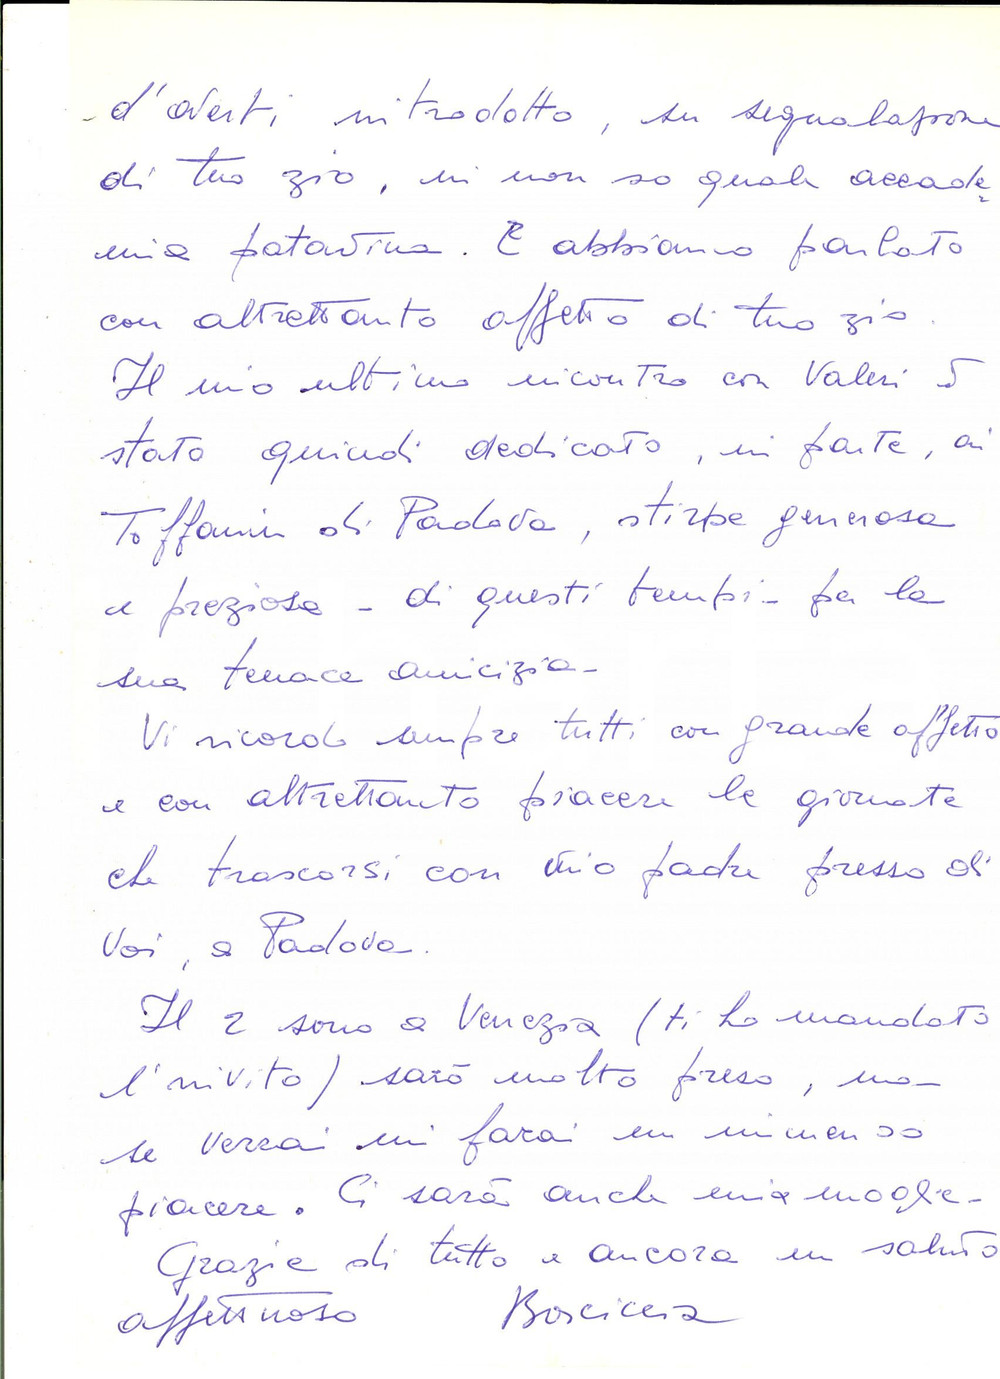 d'averti introdotto, su segnalazione
di tuo zio, in non so quale accade=
mia patavina. E abbiamo parlato
con altrettanto affetto di tuo zio.
Il mio ultimo incontro con Valeri è
stato quindi dedicato, in parte, ai
Toffanin di Padova, stirpe generosa
e preziosa - di questi tempi - per la
sua tenace amicizia -
Vi ricordo sempre tutti con grande affetto
e con altrettanto piacere le giornate
che trascorsi con mio padre presso di
voi, a Padova.
Il 2 sono a Venezia (ti ho mandato
l'invito) sarò molto preso, ma -
se verrai mi farai un immenso
piacere. Ci sarà anche mia moglie -
Grazie di tutto e ancora un saluto
affettuoso